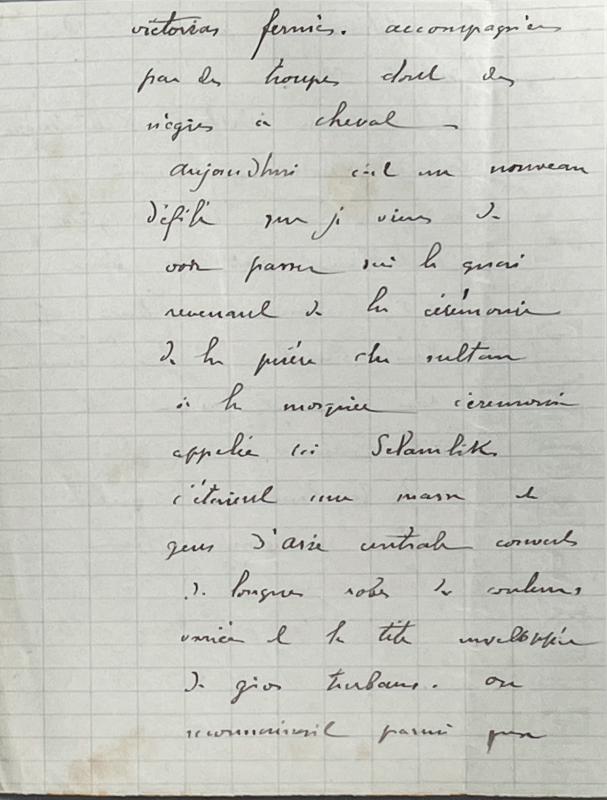 victorias fermés. accompagnées
par des troupes dont des
nègres à cheval –
aujourdhui c'est un nouveau
défilé que je viens de
voir passer sur le quai
revenant de la cérémonie
de la prière du sultan
à la mosquée cérémonie
appelée ici Selamlik
c'étaient une masse de
gens d'asie centrale couverts
de longues robes de couleurs
variée et la tête enveloppée
de gros turbans. on
reconnaissait parmi